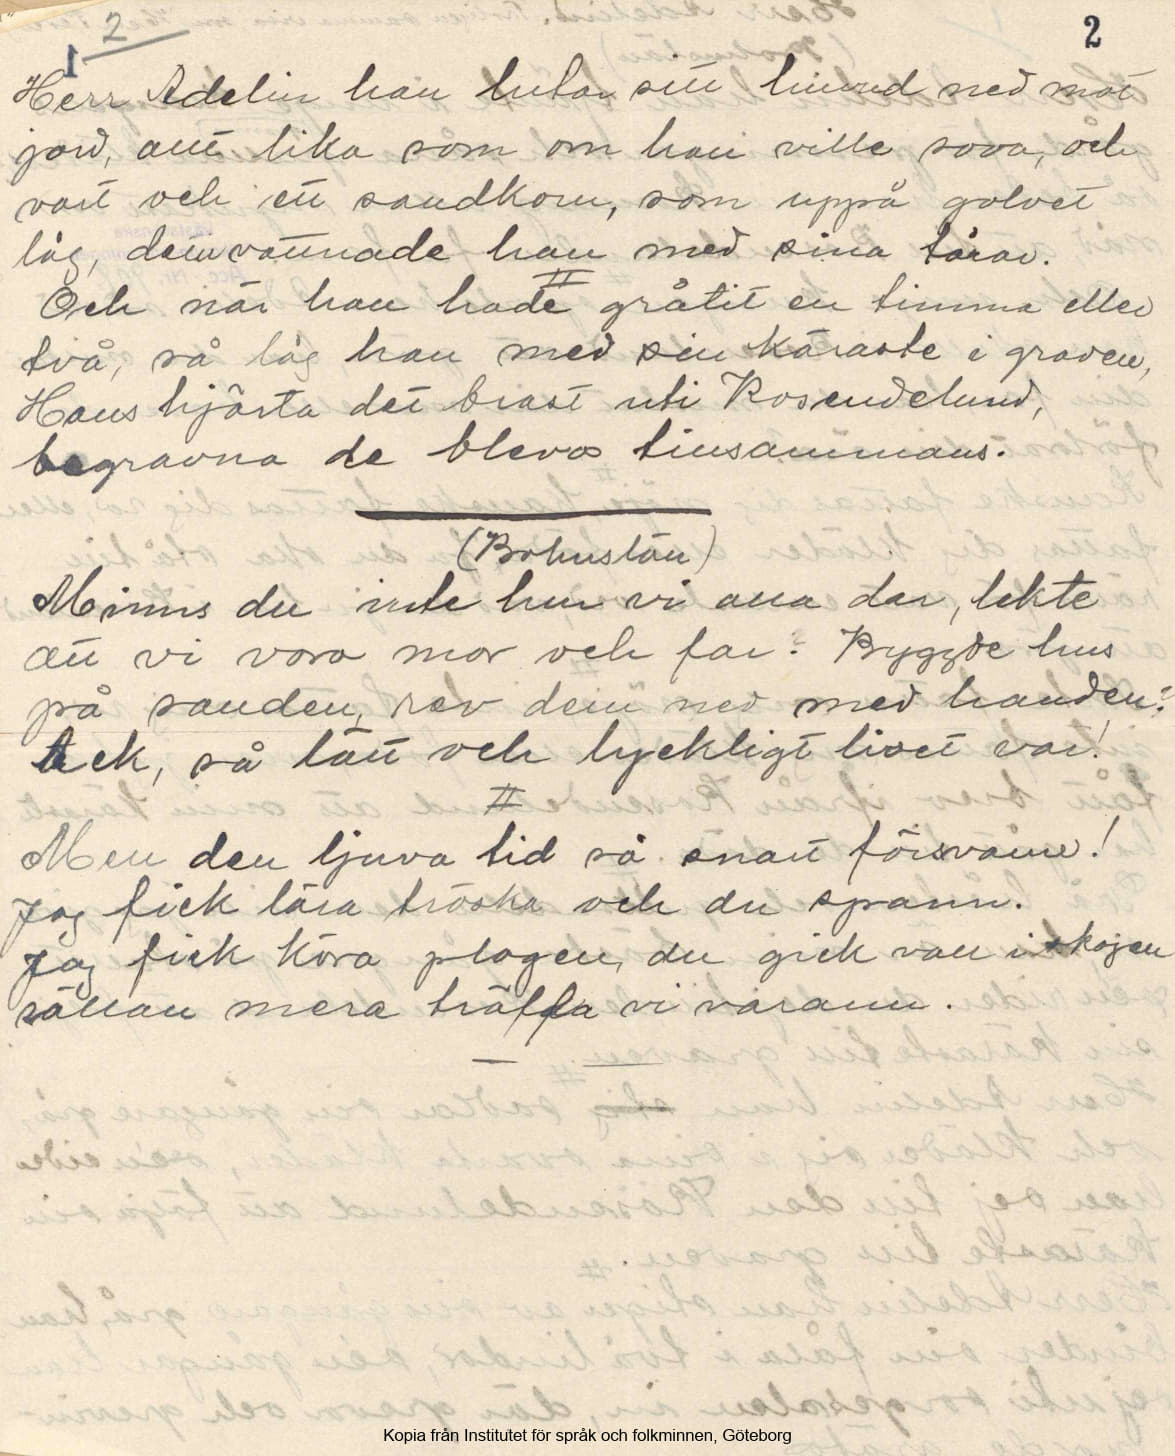 2
1
2
Herr Adelin han lutar sitt huvud ned mot
jord, att lika som om han ville sova, och
vart och ett sandkorn, som uppå golvet
låg, dem vattnade han med sina tårar.
II
Och när han hade gråtit en timma eller
två, så låg han med sin käraste i graven,
Hans hjärta det brast uti Rosendelund,
begravna de blevo tillsammans.
(Bohuslän)
Minns du inte hur vi alla dar, lekte
att vi voro mor och far? Byggde hus
på sanden, rev dem ned med handen?
Ack, så lätt och lyckligt livet var!
II
Men den ljuva tid så snart försvann!
Jag fick lära tröska och du spann.
Jag fick köra plogen, du gick vall i skogen
sällan mera träffa vi varann.
Kopia från Institutet för språk och folkminnen, Göteborg